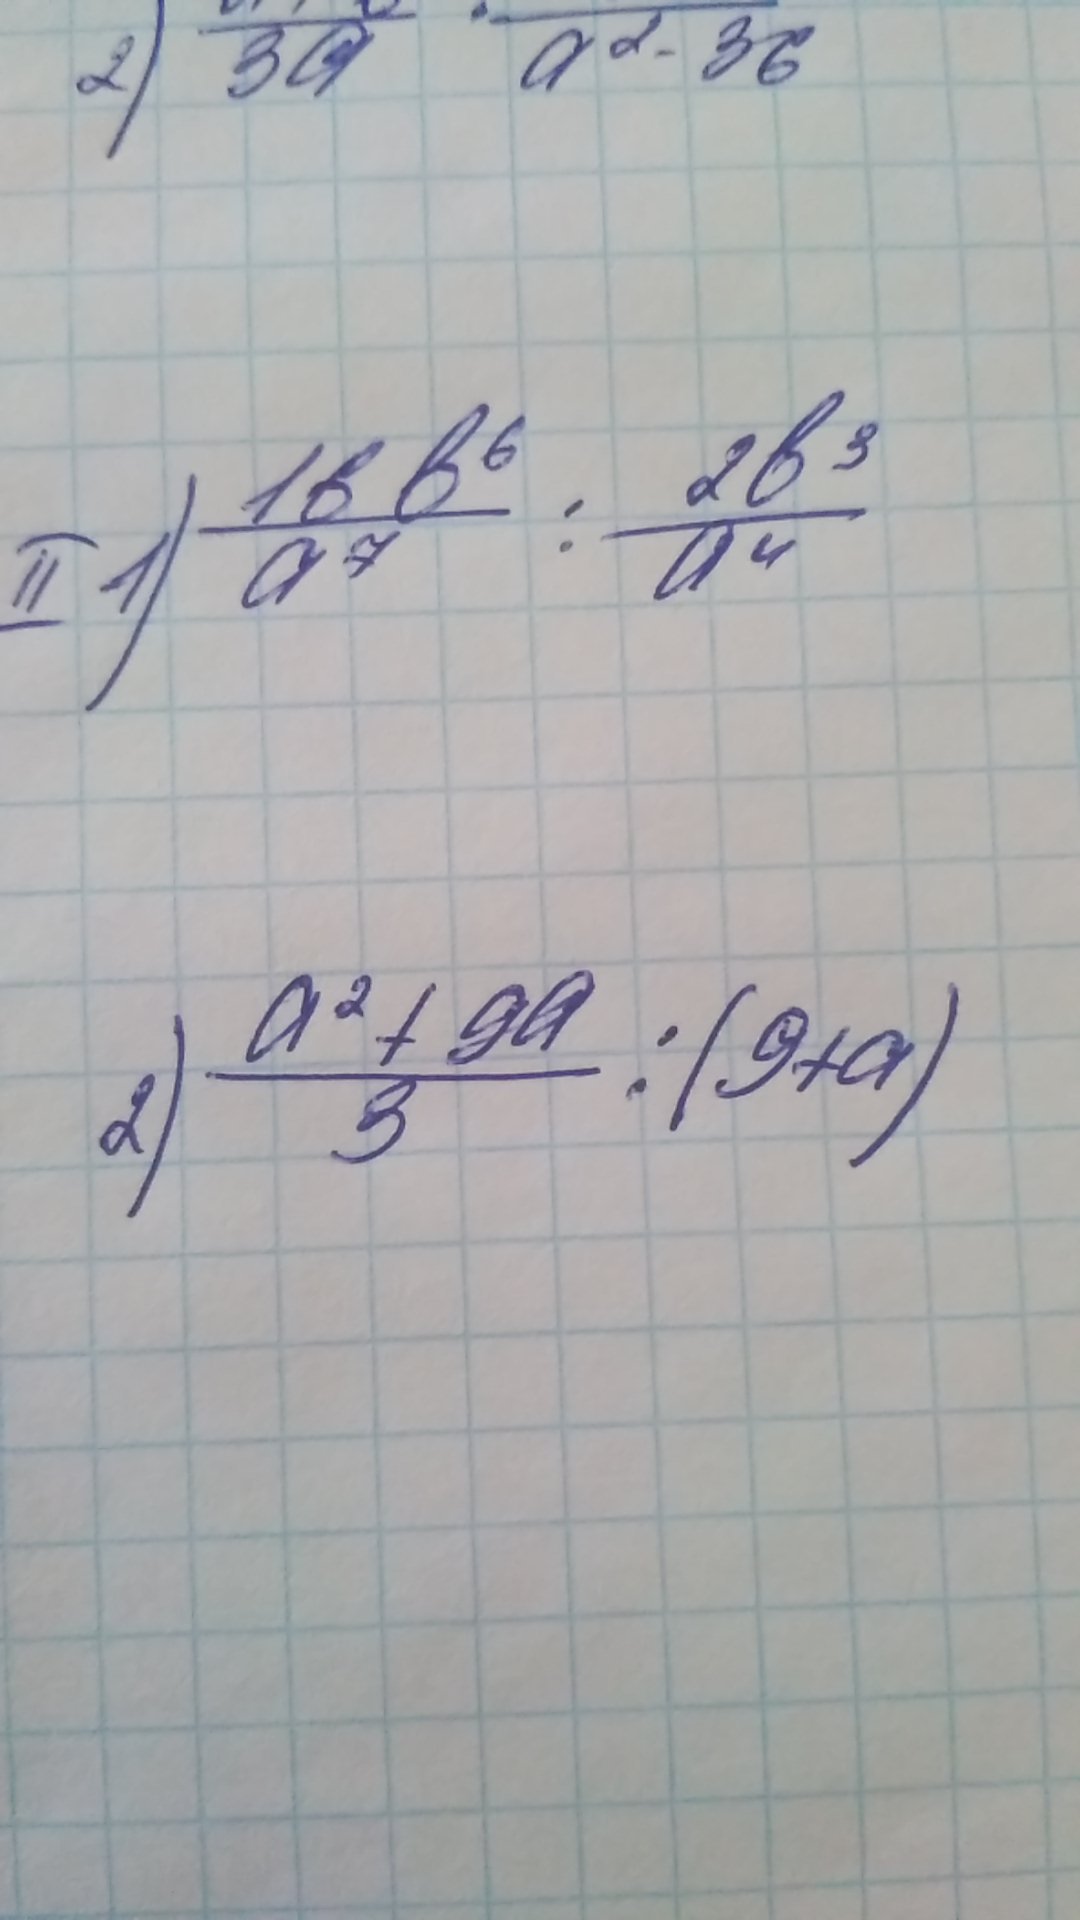 2) 3a : a² - 36
II 1) 18b⁶/a⁷ : 2b³/a⁴
2) a² + 9a/3 : (9+a)